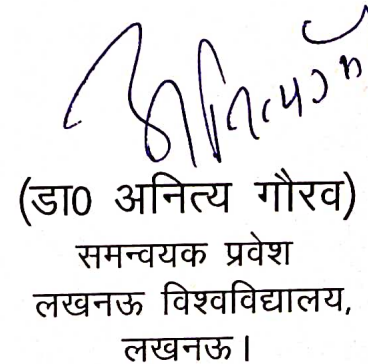 (डा0 अनित्य गौरव)
समन्वयक प्रवेश
लखनऊ विश्वविद्यालय,
लखनऊ।